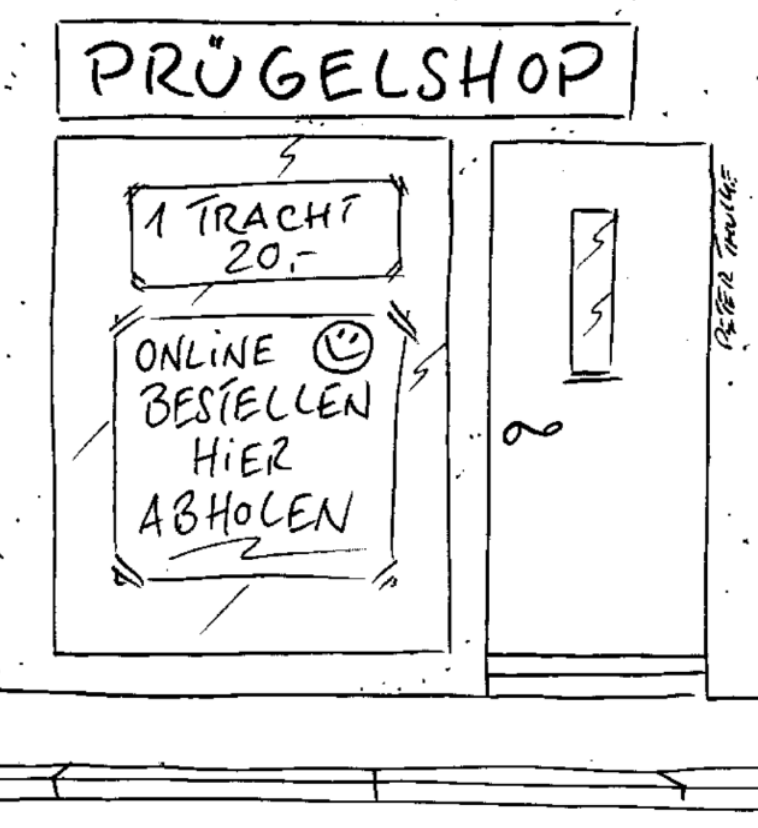 PRÜGELSHOP
1 TRACHT
20,-
ONLINE
BESTELLEN
HIER
ABHOLEN
PETER THULKE